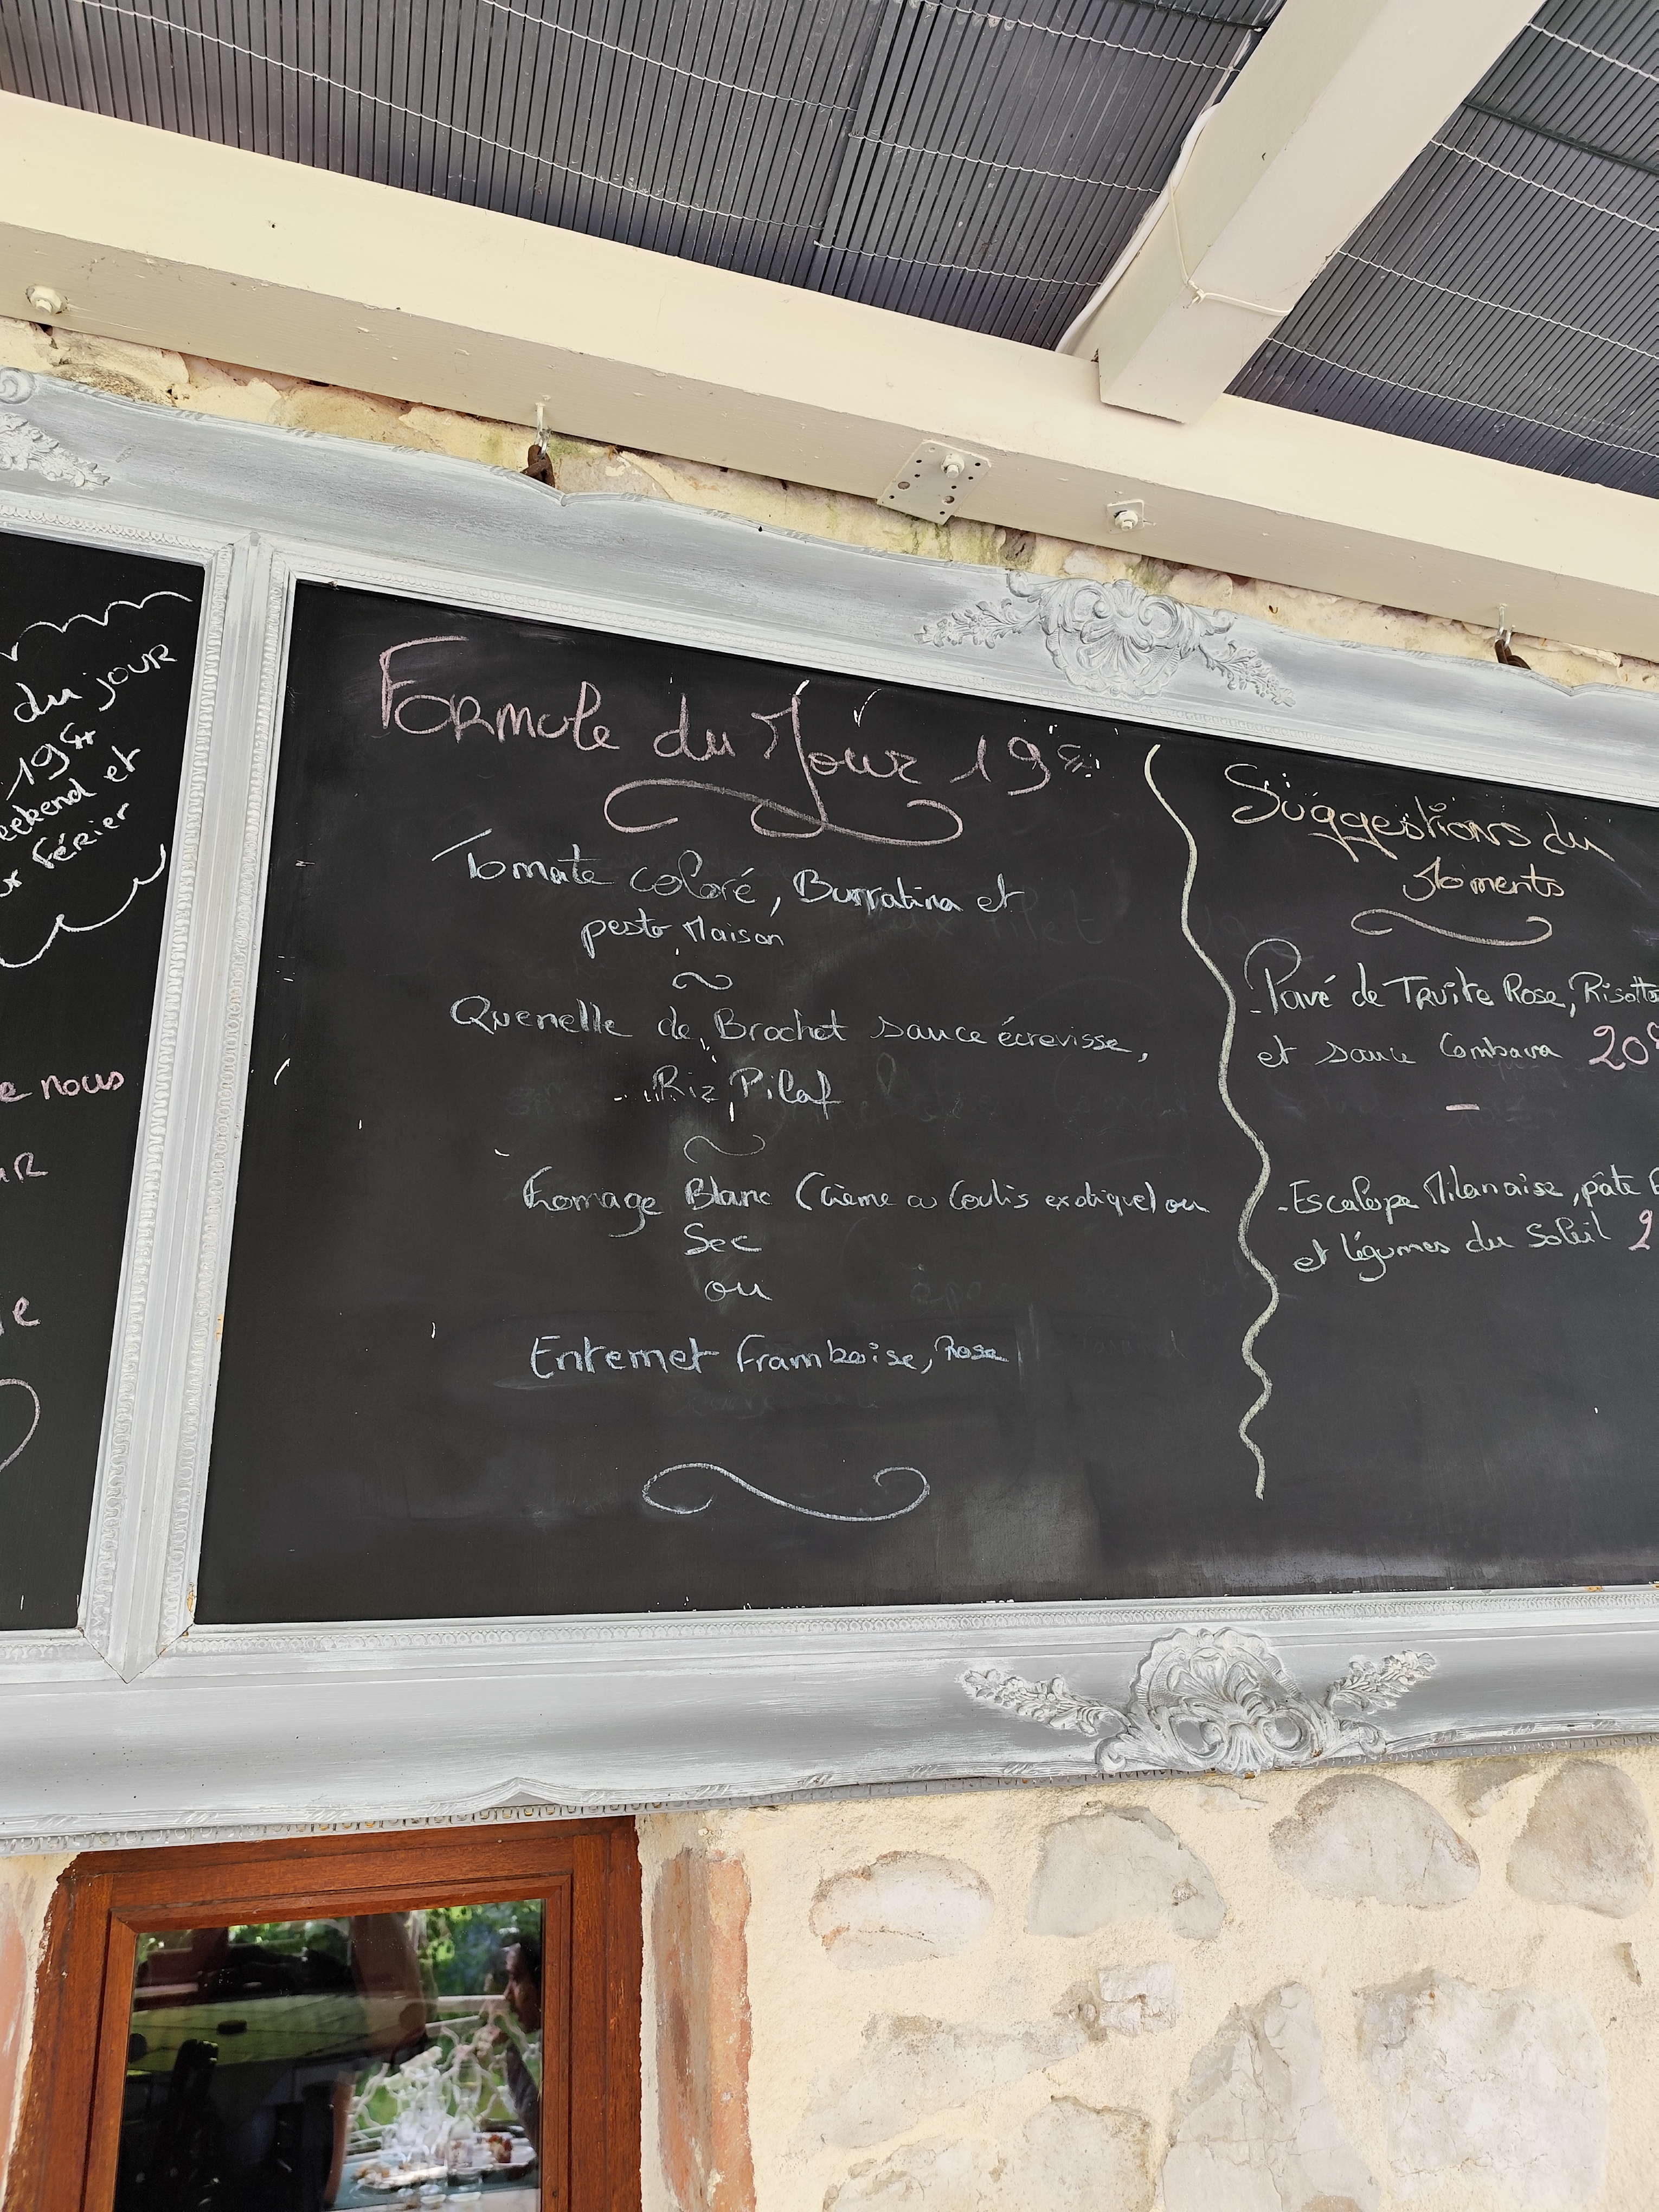 du jour
19€
eekend et
férier
e nous
Formule du Jour 19€
Tomate coloré, Burratina et
pesto Maison
Quenelle de Brochet sauce écrevisse,
Riz Pilaf
fromage Blanc (Crème ou Coulis exotique) ou
Sec
ou
Entremet framboise, Rose
Suggestions du
Moments
-Pavé de Truite Rose, Risotto
et sauce Combava 20€
-Escalope Milanaise, pâte
et légumes du Soleil 2